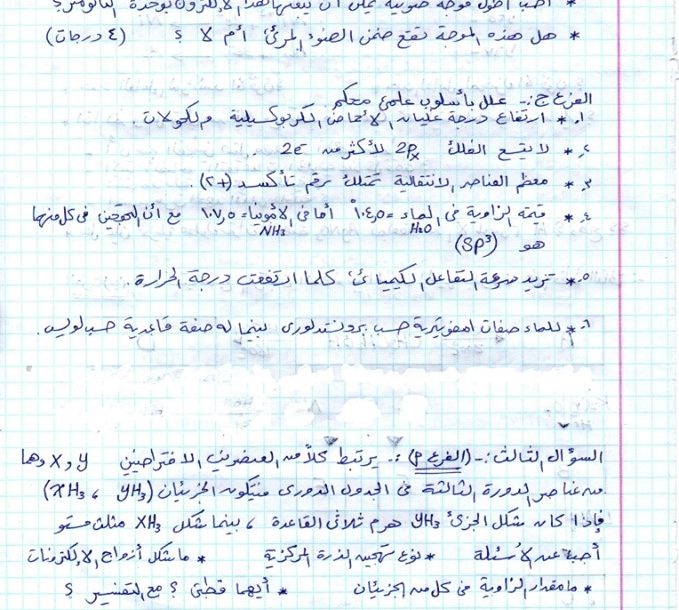 * أحسب أطول موجة ضوئية يمكن أن يبعثها هذا الإلكترون بوحدة النانومتر؟
* هل هذه الموجة تقع ضمن الضوء المرئي أم لا ؟ (٤ درجات)
الفرع ج :- علل بأسلوب علمي محكم
١. * ارتفاع درجة غليان الأحماض الكربوكسيلية والكحولات .
٢. * لا يتسع الفلك 2Px لأكثر من 2e⁻ .
٣. * معظم العناصر الانتقالية تمتلك رقم تأكسد (+٢).
٤. * قيمة الزاوية في الماء H2O = ١٠٤,٥° أما في الأمونيا NH3 = ١٠٧,٥ مع أن التهجين في كل منهما
هو (SP³)
٥. * تزيد سرعة التفاعل الكيميائي كلما ارتفعت درجة الحرارة .
٦. * للماء صفات امفوتيرية حسب برونستد لوري بينما له صفة قاعدية حسب لويس .
السؤال الثالث :- (الفرع أ) :- يرتبط كلاً من العنصرين الافتراضيين Y و X وهما
من عناصر الدورة الثالثة في الجدول الدوري فيتكون الجزيئان (YH3 ، XH3)
فإذا كان شكل الجزئ YH3 هرم ثلاثي القاعدة ، بينما شكل XH3 مثلث مستو
أجب عن الأسئلة * نوع تهجين الذرة المركزية * ما شكل أزواج الإلكترونات
* ما مقدار الزاوية في كل من الجزيئان * أيهما قطبي ؟ مع التفسير ؟